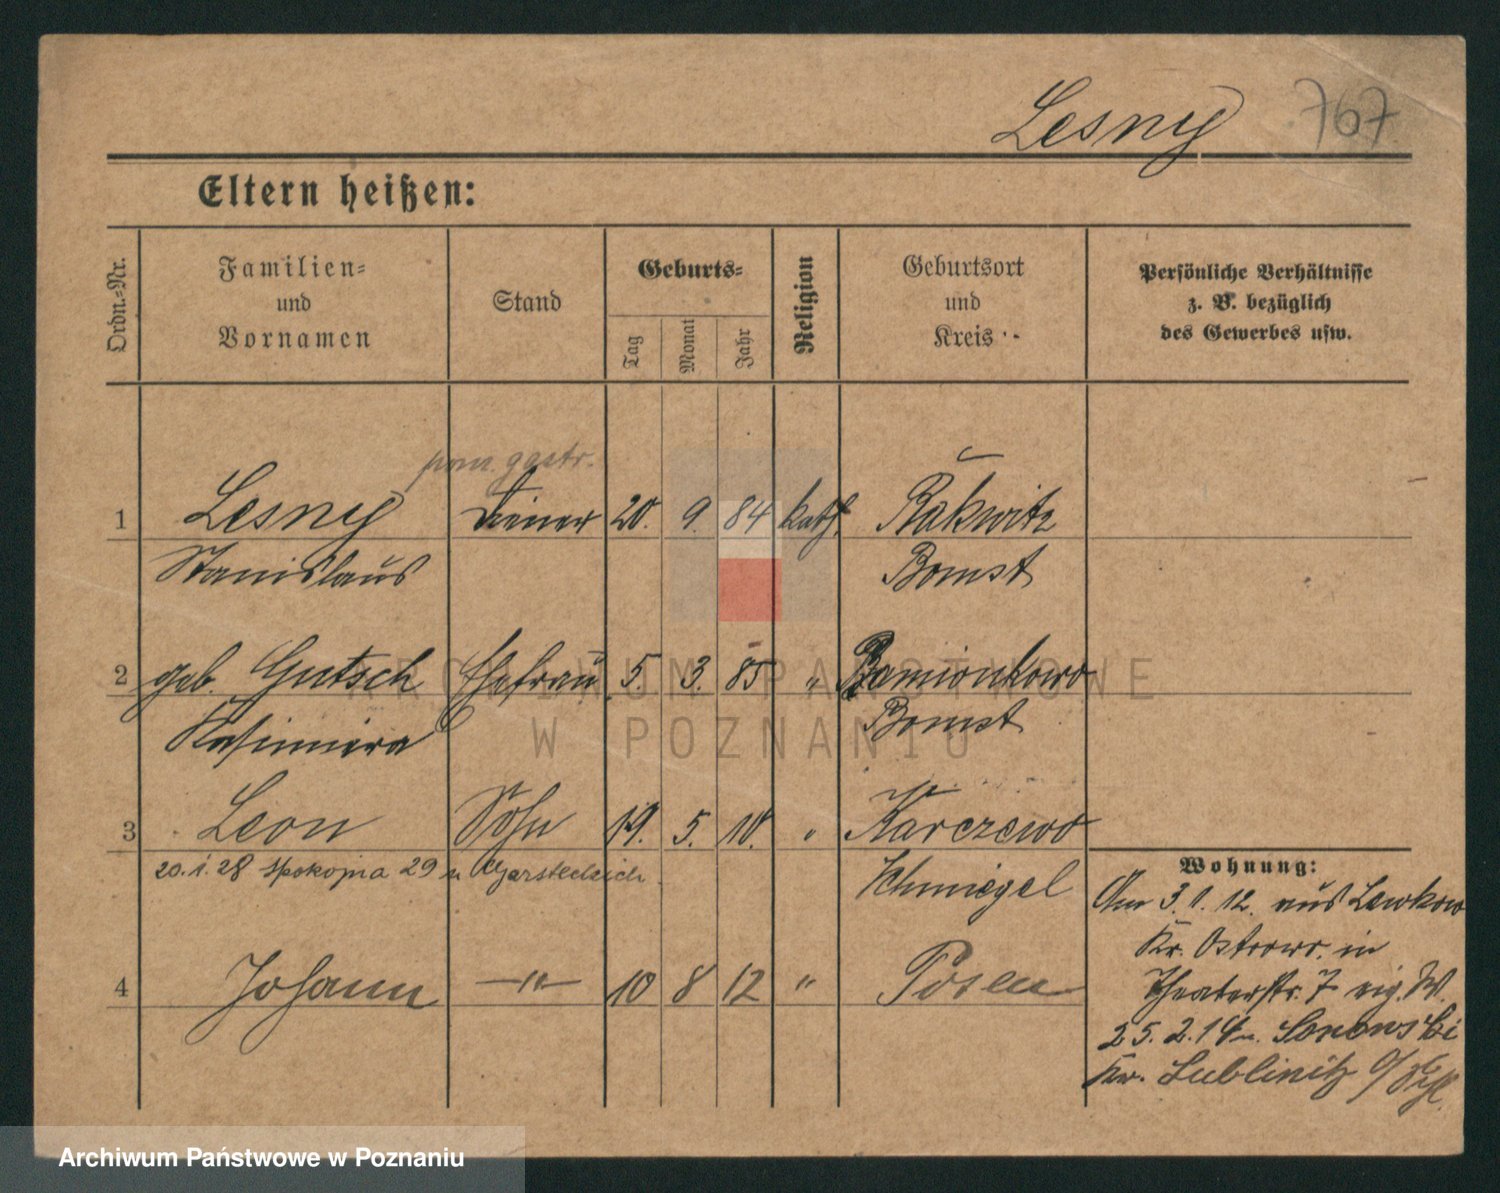 Lesny 767
Eltern heißen:
Ordn.-Nr. Familien- und Vornamen Stand Geburts- Tag Monat Jahr Religion Geburtsort und Kreis Persönliche Verhältnisse z. B. bezüglich des Gewerbes usw.
1 Lesny Diener 20. 9. 84 kath. Rakwitz
Stanislaus Bomst
2 geb. Gutsch Ehefrau 5. 3. 85 " Bomst
Kasimiera
3 Leon Sohn 19. 5. 10. " Karczewo
20.1.28 29 Schmiegel
4 Johann —"— 10 8 12 " Posen
Wohnung:
Am 3.1.12. aus Lewkow
Kr. Ostrowo, in
Theaterstr. 7 eig. W.
25.2.14 n.
Kr. Lublinitz
ARCHIWUM PAŃSTWOWE
W POZNANIU
Archiwum Państwowe w Poznaniu